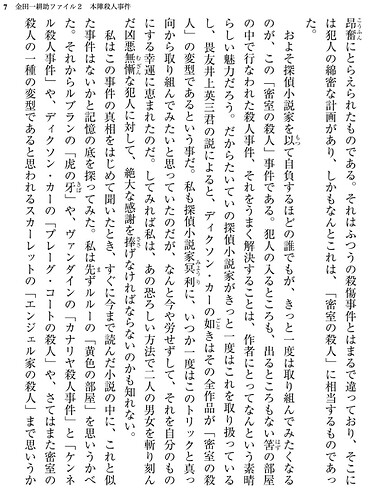 7　金田一耕助ファイル２　本陣殺人事件
昂奮にとらえられたものである。それはふつうの殺傷事件とはまるで違っており、そこに
は犯人の綿密な計画があり、しかもなんとこれは、「密室の殺人」に相当するものであっ
た。
およそ探偵小説家を以て自負するほどの誰でもが、きっと一度は取り組んでみたくなる
のが、この「密室の殺人」事件である。犯人の入るところも、出るところもない筈の部屋
の中で行なわれた殺人事件、それをうまく解決することは、作者にとってなんという素晴
らしい魅力だろう。だからたいていの探偵小説家がきっと一度はこれを取り扱っている
し、畏友井上英三君の説によると、ディクソン・カーの如きはその全作品が「密室の殺
人」の変型であるという事だ。私も探偵小説家冥利に、いつか一度はこのトリックと真っ
向から取り組んでみたいと思っていたのだが、なんと今や労せずして、それを自分のもの
にする幸運に恵まれたのだ。してみれば私は、あの恐ろしい方法で二人の男女を斬り刻ん
だ凶悪無慚な犯人に対して、絶大な感謝を捧げなければならないのかも知れない。
私はこの事件の真相をはじめて聞いたとき、すぐに今まで読んだ小説の中に、これと似
た事件はないかと記憶の底を探ってみた。私は先ずルルーの「黄色の部屋」を思いうかべ
た。それからルブランの「虎の牙」や、ヴァンダインの「カナリヤ殺人事件」と「ケンネ
ル殺人事件」や、ディクソン・カーの「プレーグ・コートの殺人」や、さてはまた密室の
殺人の一種の変型であると思われるスカーレットの「エンジェル家の殺人」まで思いうか